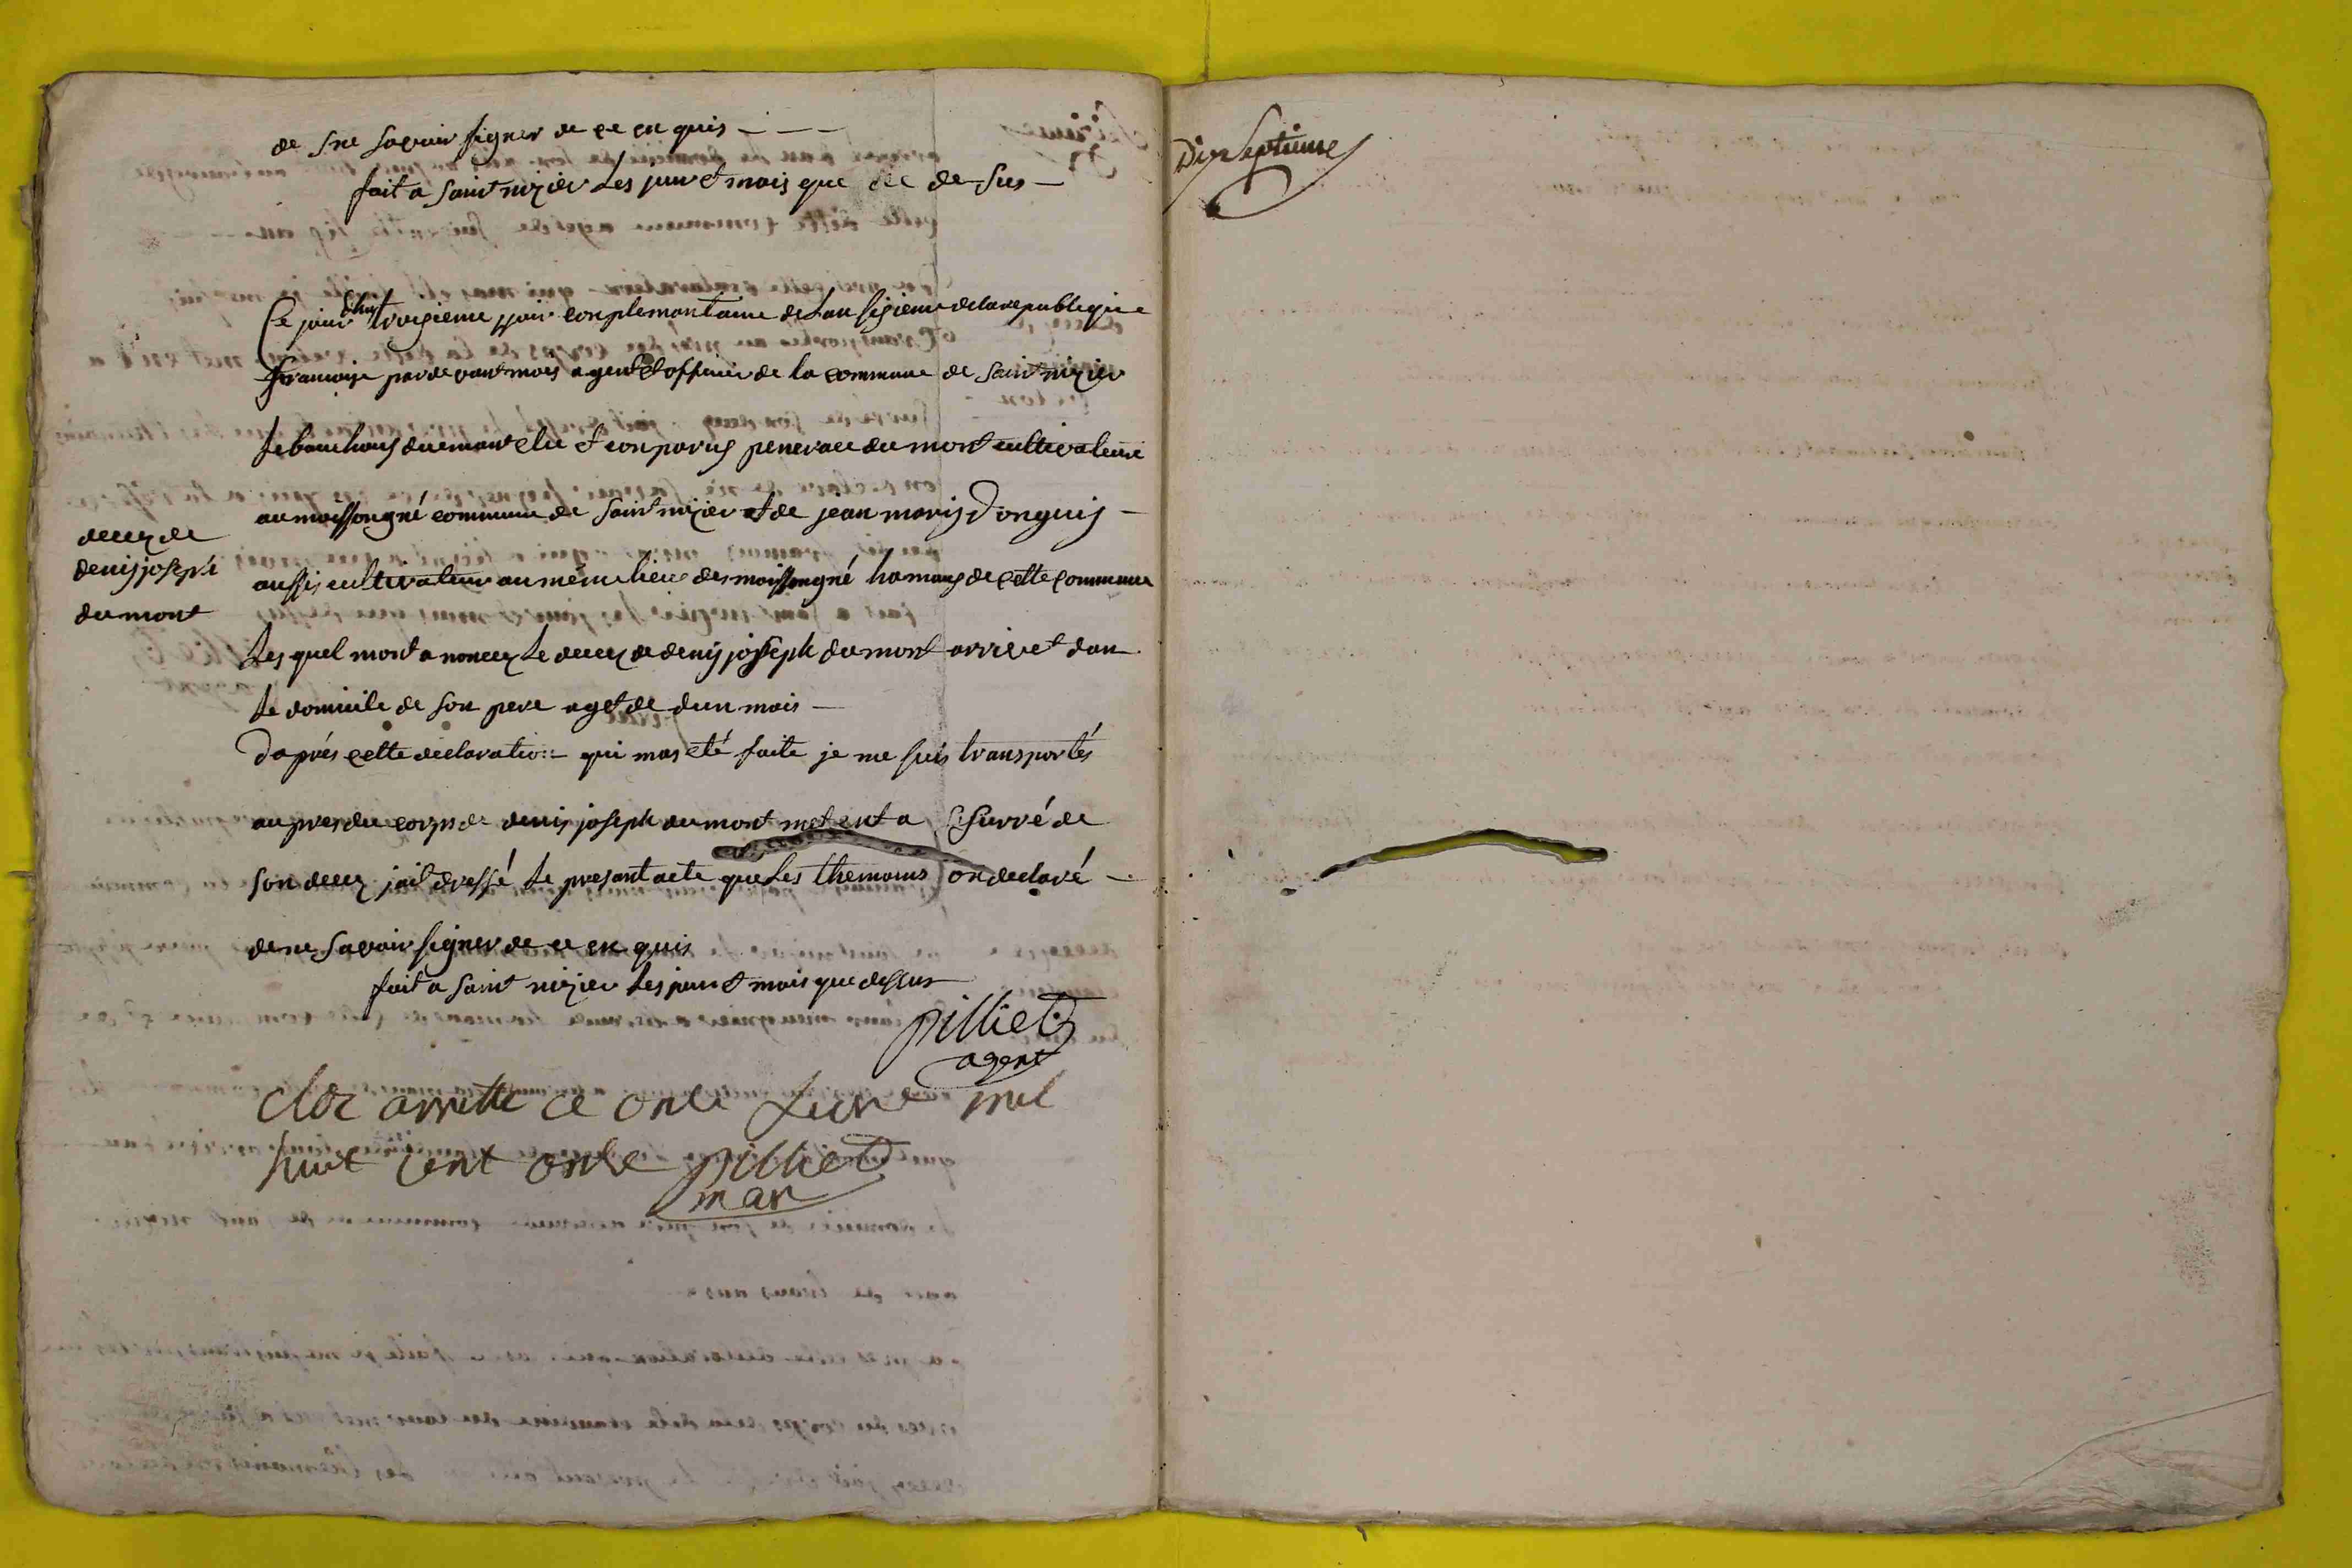 de sne savoir signer de ce en quis - - -
fait a saint nizier les jour et mois que die de sus -
Ce jour dhuy troisieme jour conplemantaire de lan sizieme de la republiqie
francaise par devant mois agent et officier de la commune de saint nizier
le bouchoux duemant elu et conparus penerace du mont cultivateure
au moissongné commune de saint nizier et de jean maris donguis -
decez de
denis joseph
du mont
aussis cultivateur au même lieu des moissongné hamaus de cette commune
les quel mont a noncez le decez de denis joseph du mont arrivet dan
le domicile de son pere aget de dun mois -
daprés cette declaration qui mas eté faite je me suis transportés
au pres du corps de denis joseph du mont met ent a surré de
son decez jait dressé le presant acte que les themoins on declaré -
de ne savoir signer de ce en quis
fait a saint nizier les jour et mois que dessus
pilliet
agent
clot arrette ce onze mil
huit cent onze pilliet
mar
Dix Septieme